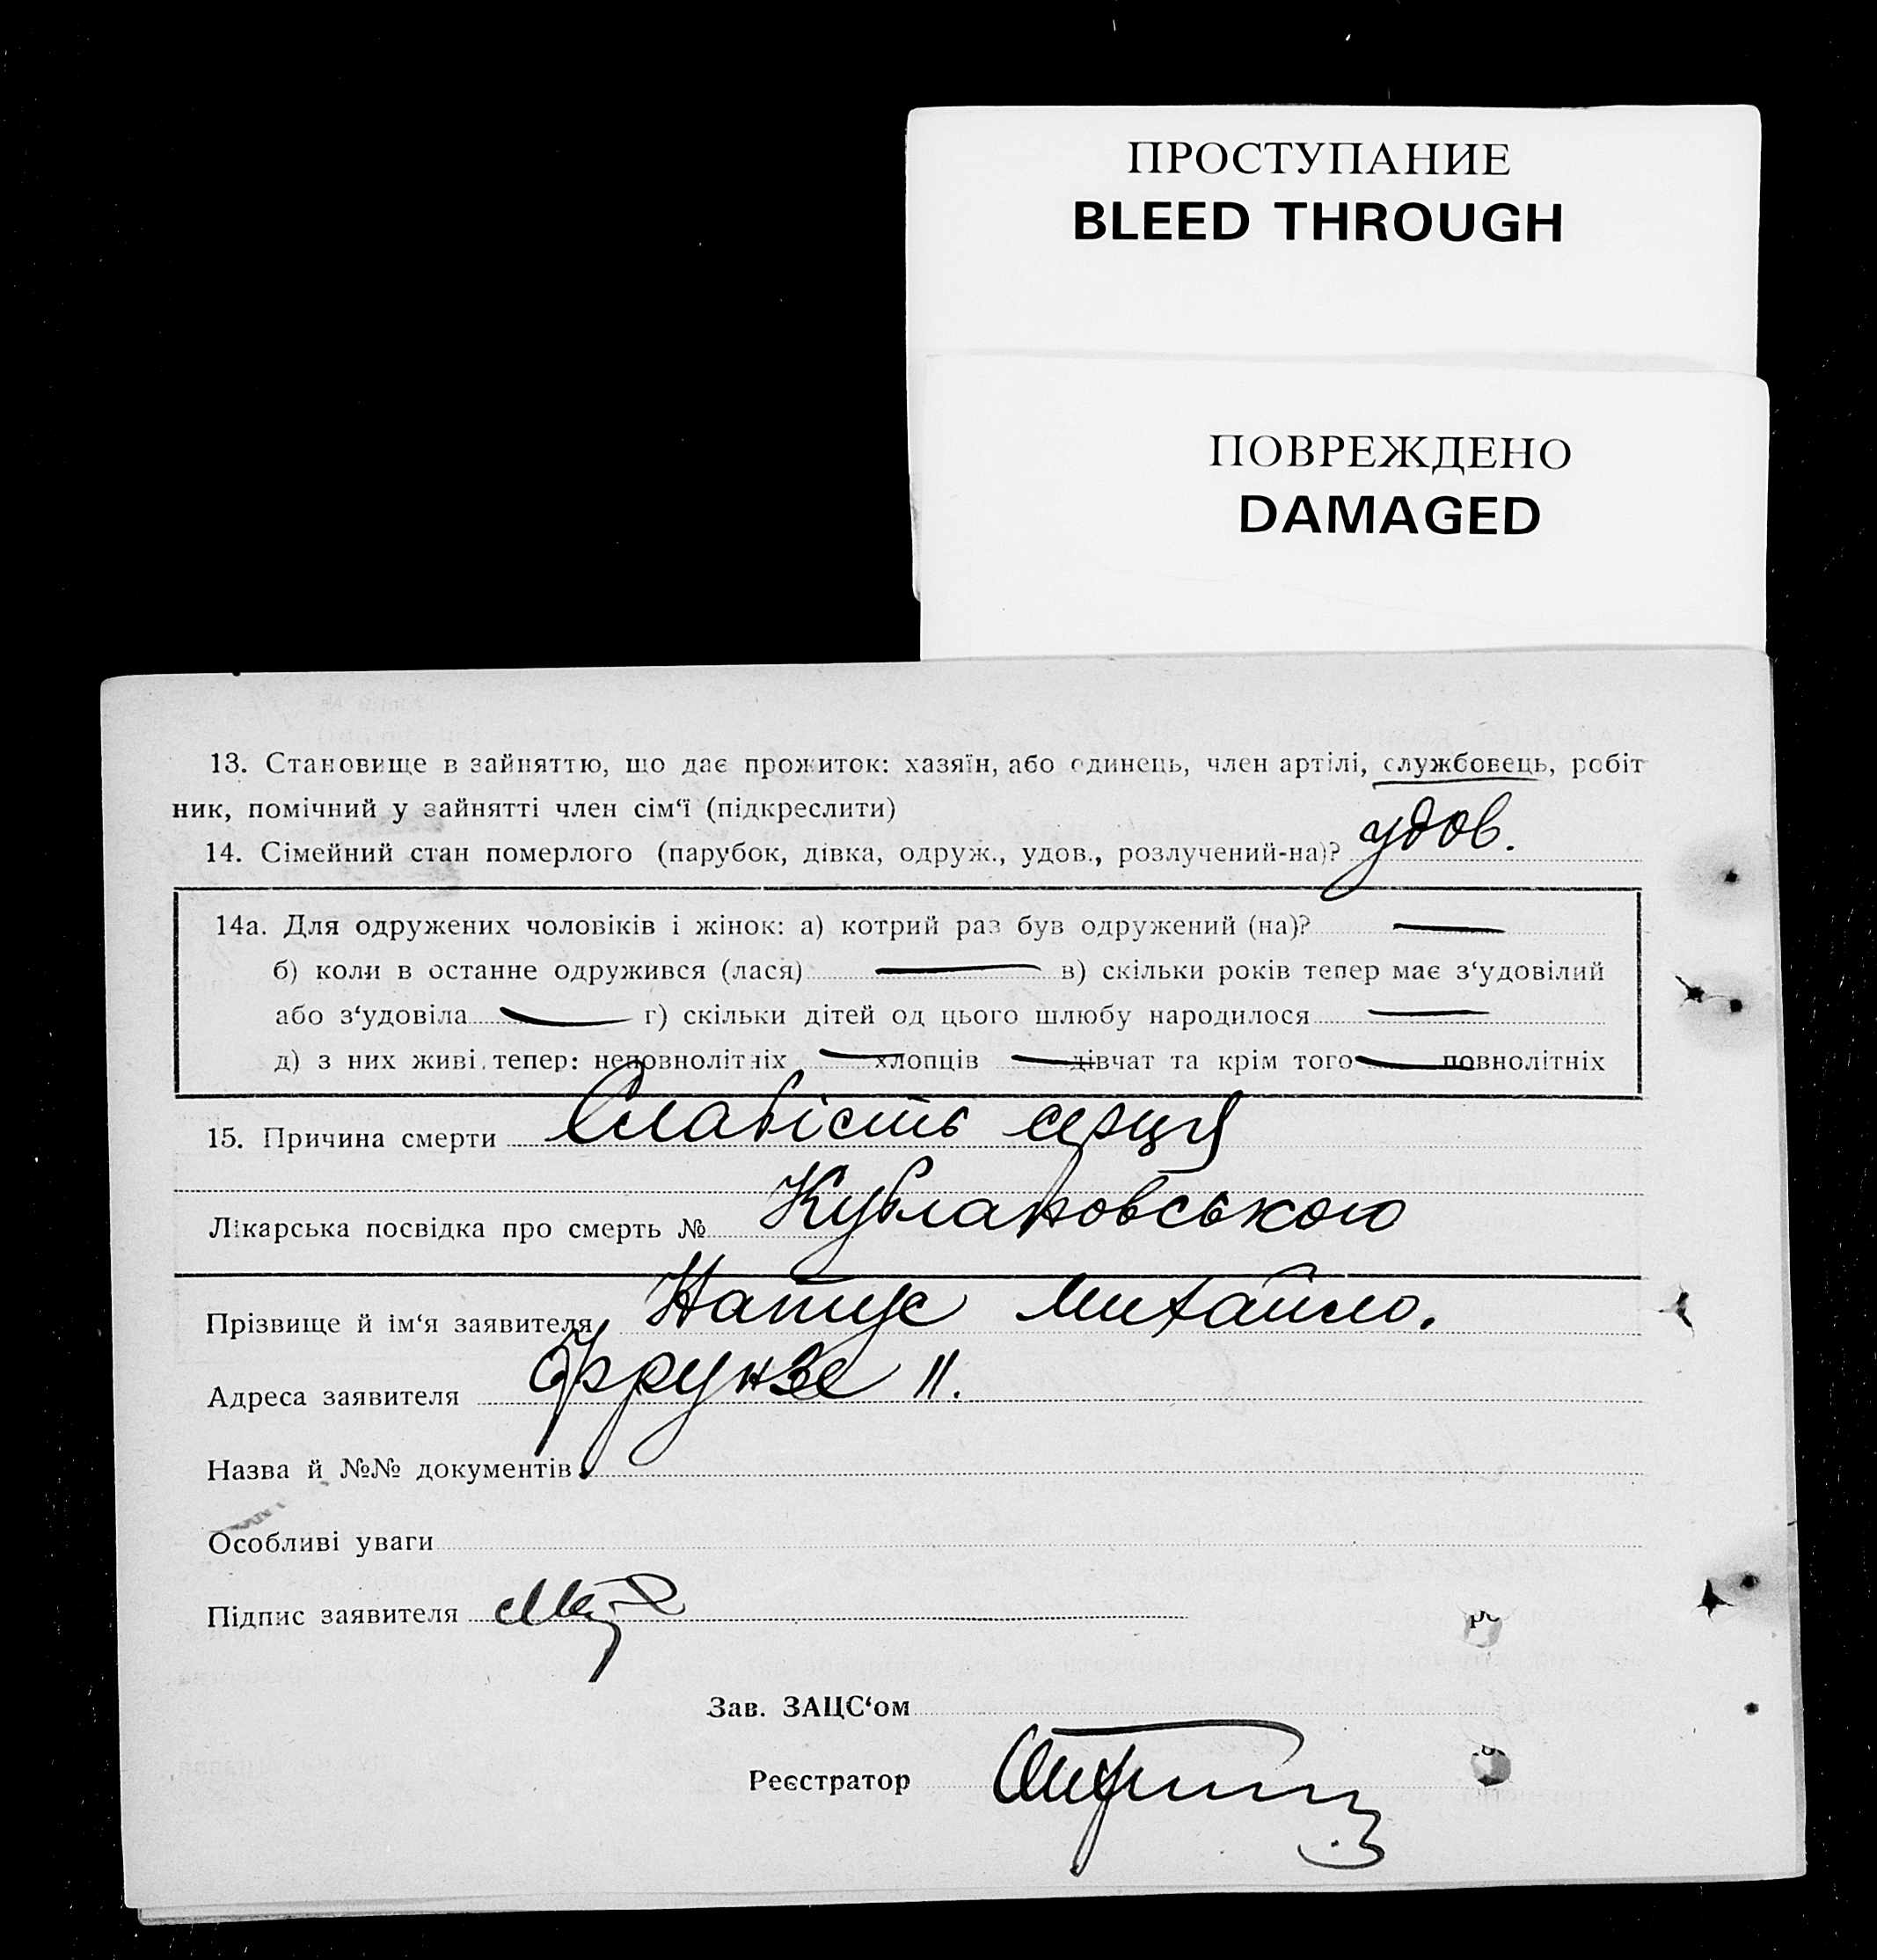 ПРОСТУПАНИЕ
BLEED THROUGH
ПОВРЕЖДЕНО
DAMAGED
13. Становище в зайняттю, що дає прожиток: хазяїн, або одинець, член артілі, службовець, робіт
ник, помічний у зайнятті член сім‘ї (підкреслити)
14. Сімейний стан померлого (парубок, дівка, одруж., удов., розлучений-на)? удов.
14а. Для одружених чоловіків і жінок: а) котрий раз був одружений (на)? —
б) коли в останне одружився (лася) — в) скільки років тепер має з‘удовілий
або з‘удовіла — г) скільки дітей од цього шлюбу народилося —
д) з них живі тепер: неповнолітніх — хлопців — дівчат та крім того — повнолітніх
15. Причина смерти Слабість серця
Лікарська посвідка про смерть № Кублановського
Прізвище й ім‘я заявителя Натус Михайло.
Адреса заявителя Фрунзе 11.
Назва й №№ документів
Особливі уваги
Підпис заявителя
Зав. ЗАЦС‘ом
Реєстратор